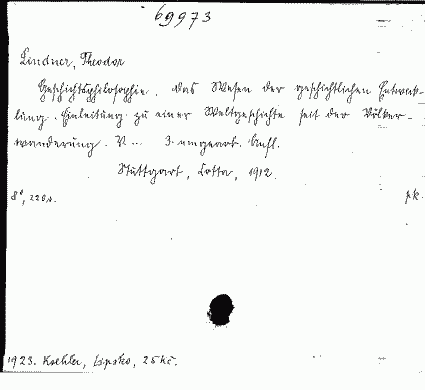 69973
Lindner, Theodor
Geschichtsphilosophie. Das Wesen der geschichtlichen Entwick-
lung. Einleitung zu einer Weltgeschichte seit der Völker-
wanderung. V... 3. umgearb. Aufl.
Stuttgart, Cotta, 1912.
8°, 226 s. pk.
1923. Koehler, Lipsko, 25 Kč.